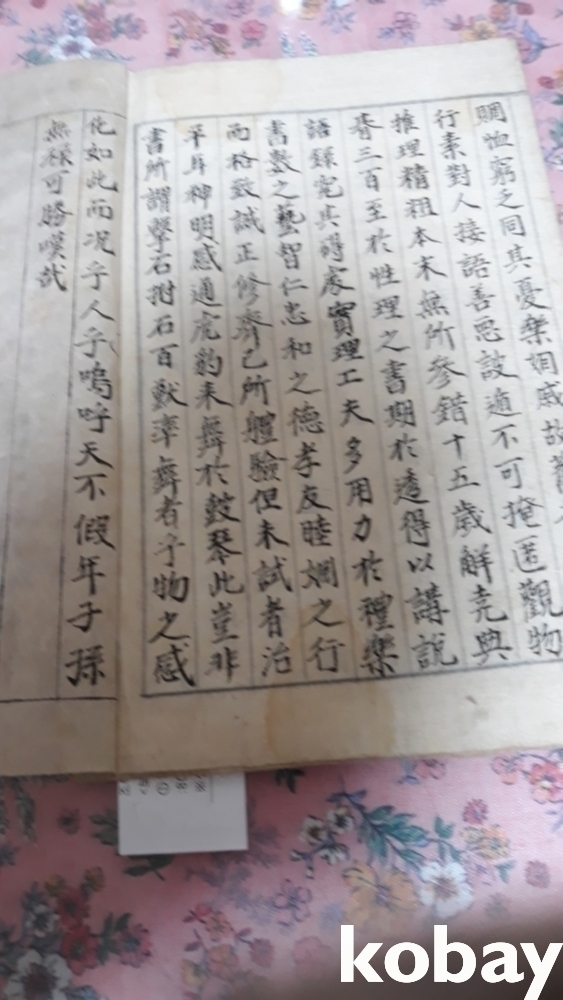 賙恤窮乏同其憂樂姻戚故舊
行素對人接語善惡設道不可掩匿觀物
推理精粗本末無所參錯十五歲解堯典
朞三百至於性理之書期於透得以講說
語錄究其碍處實理工夫多用力於禮樂
書數之藝智仁忠和之德孝友睦婣之行
而格致誠正修齊己所體驗但未試者治
平耳神明感通虎豹来舞於鼓琴此豈非
書所謂擊石拊石百獸率舞者乎物之感
化如此而况乎人乎嗚呼天不假年子孫
無祿可勝嘆哉
kobay